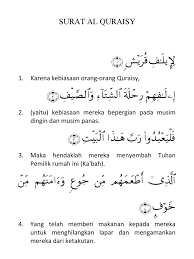 SURAT AL QURAISY
لِإِيلَٰفِ قُرَيْشٍ ۝١
1. Karena kebiasaan orang-orang Quraisy,
إِۦلَٰفِهِمْ رِحْلَةَ ٱلشِّتَآءِ وَٱلصَّيْفِ ۝٢
2. (yaitu) kebiasaan mereka bepergian pada musim
dingin dan musim panas.
فَلْيَعْبُدُوا۟ رَبَّ هَٰذَا ٱلْبَيْتِ ۝٣
3. Maka hendaklah mereka menyembah Tuhan
Pemilik rumah ini (Ka'bah).
ٱلَّذِىٓ أَطْعَمَهُم مِّن جُوعٍ وَءَامَنَهُم مِّنْ
خَوْفٍۭ ۝٤
4. Yang telah memberi makanan kepada mereka
untuk menghilangkan lapar dan mengamankan
mereka dari ketakutan.